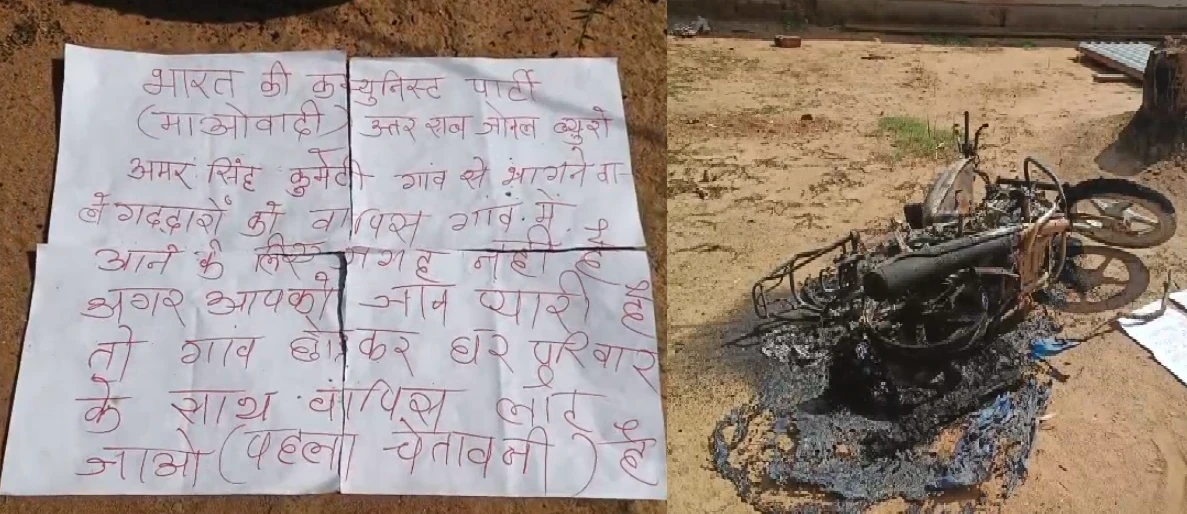 भारत की कम्युनिस्ट पार्टी
(माओवादी) उत्तर सब जोनल ब्यूरो
अमर सिंह कुमेटी गांव से भागने वा-
ले गद्दारों को वापिस गांव में
आने के लिए जगह नहीं है
अगर आपको जान प्यारी है
तो गांव छोड़कर घर परिवार
के साथ वापिस लौट
जाओ (पहला चेतावनी) है